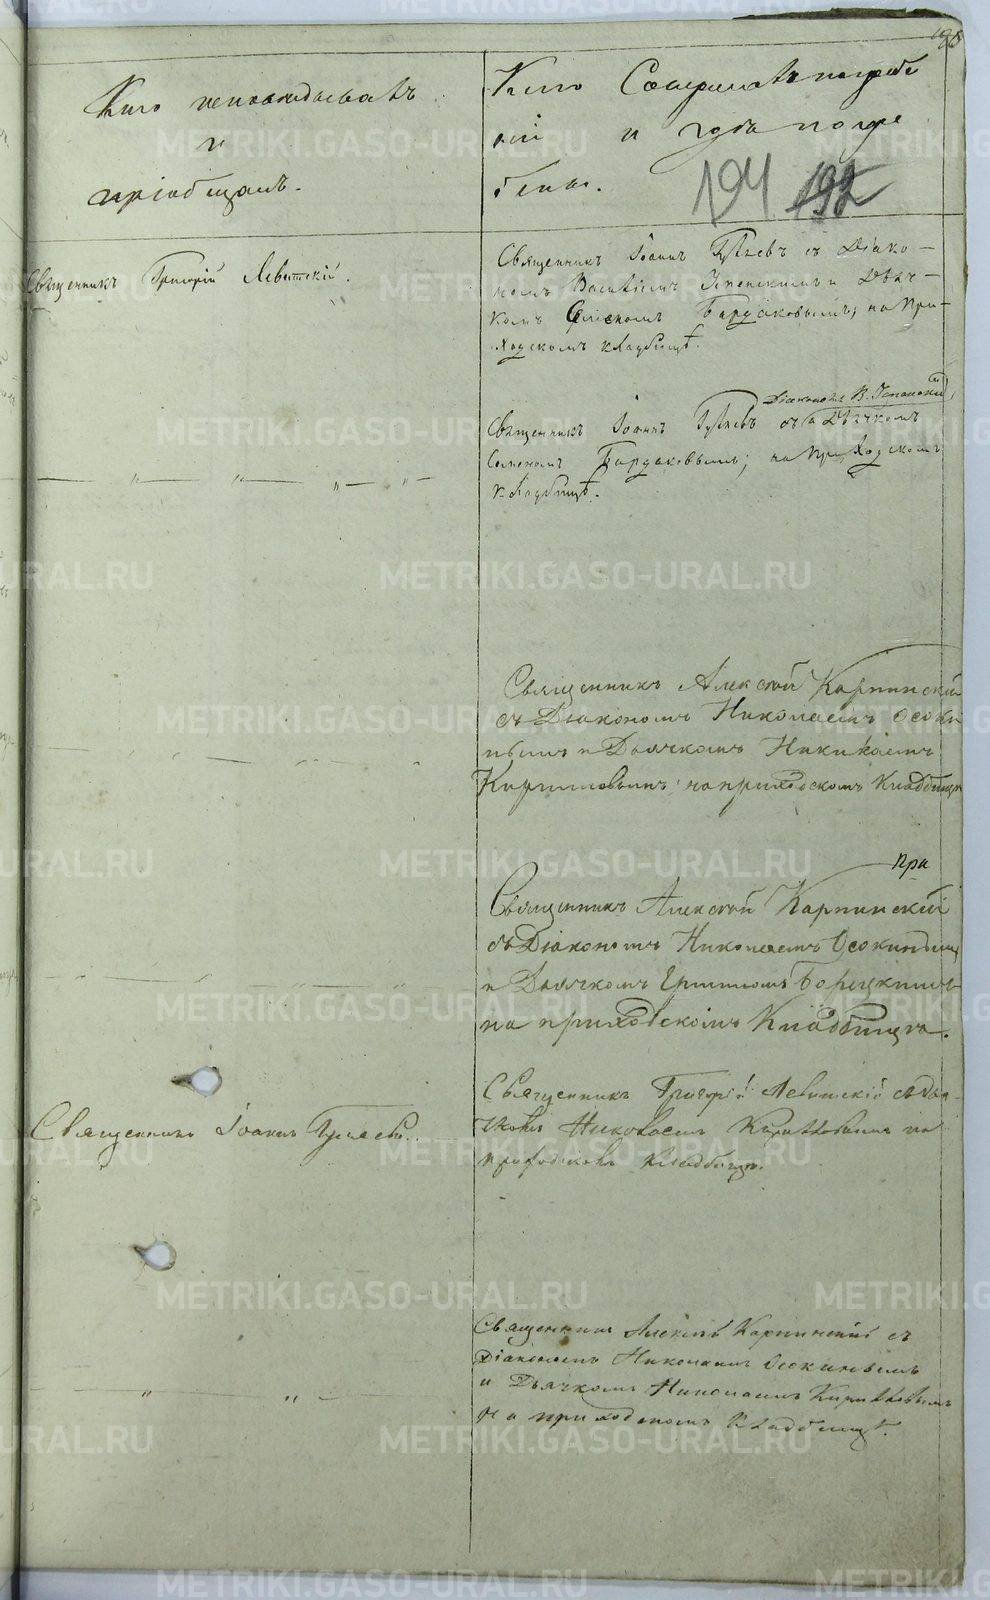 Кто исповѣдывалъ
и
пріобщалъ.
Кто Совершалъ погребе
ніе и гдѣ погре
бены.
194 192
Священникъ Григорій Левитскій.
Священникъ Іоаннъ съ Діако-
номъ Василіемъ и Дьяч-
комъ Семеномъ Бардаковымъ, на При-
ходскомъ кладбищѣ.
Діакономъ В.
Священникъ Іоаннъ съ и Дьячкомъ
Семеномъ Бардаковымъ; на Приходскомъ
кладбищѣ.
Священникъ Алексѣй Карпинскій
съ Діакономъ Николаемъ Осоки
нымъ и Дьячкомъ Николаемъ
Кирилловымъ на приходскомъ Кладбищѣ
при
Священникъ Алексѣй Карпинскій
съ Діакономъ Николаемъ Осокинымъ
и Дьячкомъ
на приходскомъ Кладбищѣ.
Священникъ Іоаннъ
Священникъ Григорій Левитскій съ Дья-
Николаемъ Кирилловымъ на
приходскомъ кладбищѣ.
Священникъ Алексѣй Карпинскій съ
Діакономъ Николаемъ Осокинымъ
и Дьячкомъ Николаемъ Кирилловымъ
на приходскомъ Кладбищѣ.
METRIKI.GASO-URAL.RU